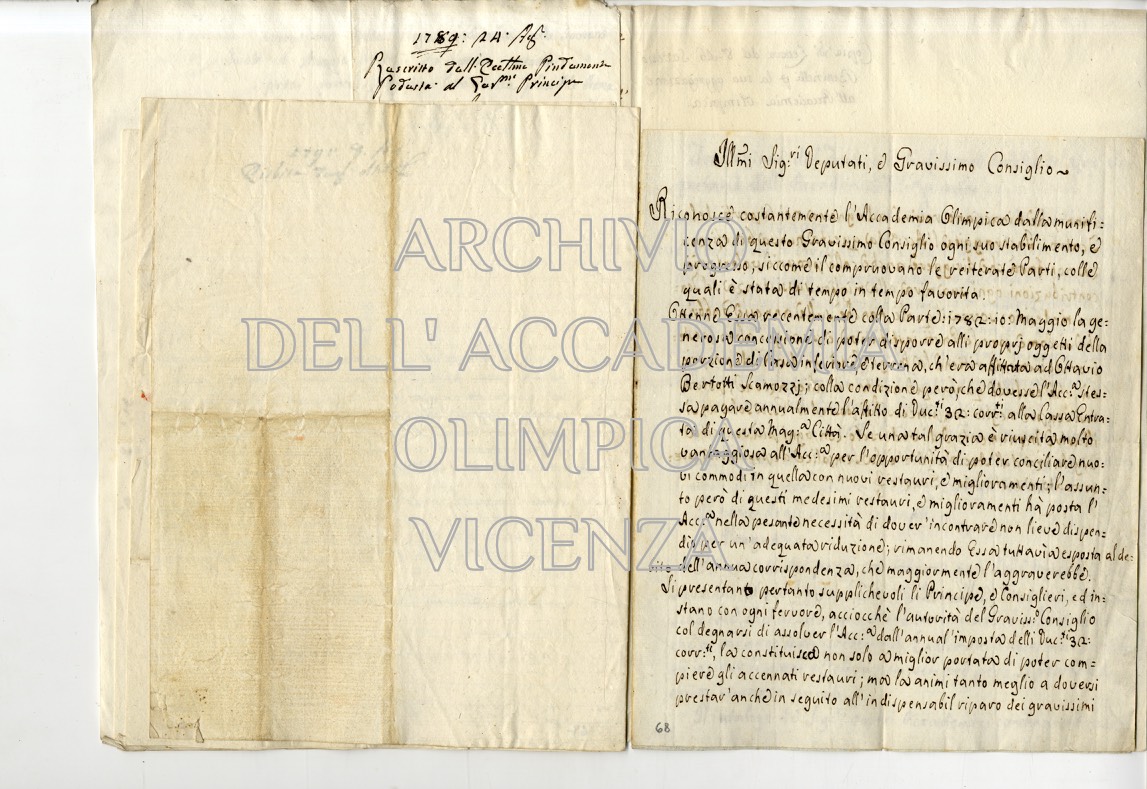 1789: 24 Ag.
Rescritto dall' Eccell.mo Pindemonte
Podestà al Principe
Ill.mi Sig.ri Deputati, e Gravissimo Consiglio~
Riconosce costantemente l'Accademia Olimpica dalla munifi=
cenza di questo Gravissimo Consiglio ogni suo stabilimento, e
progresso; siccome il compruovano le reiterate Parti, colle
quali è stata di tempo in tempo favorita
Ottenne Essa recentemente colla Parte: 1782: 10: Maggio la ge=
nerosa concessione di poter disporre alli proprj oggetti della
porzione di Casa inferiore, e terrena, ch'era affittata ad Ottavio
Bertotti Scamozzj; colla condizione però, che dovesse l'Acc.a stes=
sa pagare annualmente l'affitto di Duc.ti 32: corr.ti alla Cassa Entra=
ta di questa Mag.a Città. Se una tal grazia è riuscita molto
vantaggiosa all'Acc:a per l'opportunità di poter conciliare nuo=
vi commodi in quella con nuovi restauri, e miglioramenti; l'assun=
to però di questi medesimi restauri, e miglioramenti hà posta l'
Acc.a nella pesante necessità di dover' incontrare non lieve dispen=
dio per un'adequata riduzione; rimanendo Essa tuttavìa esposta al de=
bito dell'annua corrispondenza, che maggiormente l'aggraverebbe.
Si presentano pertanto supplichevoli li Principe, e Consiglieri, ed in=
stano con ogni fervore, acciocchè l'autorità del Graviss:o Consiglio
col degnarsi di assolver l'Acc:a dall'annual'imposta delli Duc.ti 32:
corr.ti, la constituisca non solo a miglior portata di poter com=
piere gli accennati restauri; ma la animi tanto meglio a doversi
prestar'anche in seguito all'indispensabil riparo dei gravissimi
68
ARCHIVIO
DELL' ACCADEMIA
OLIMPICA
VICENZA